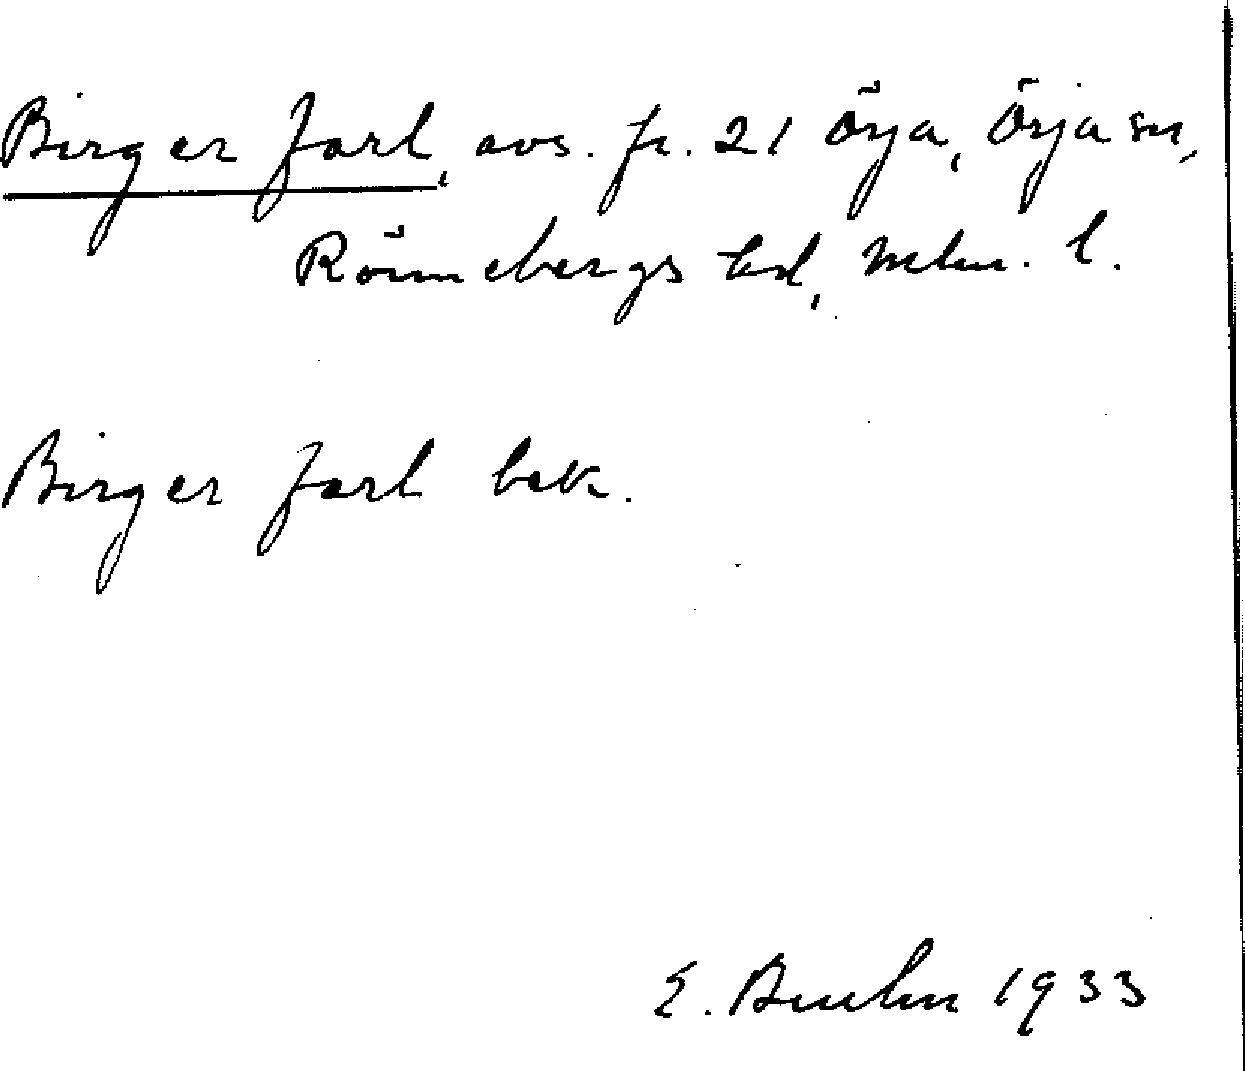 Birger Jarl, avs. fr. 21 Örja, Örja sn,
Rönnebergs hd, Mlm. l.
Birger Jarl bek.
E. Bruhn 1933